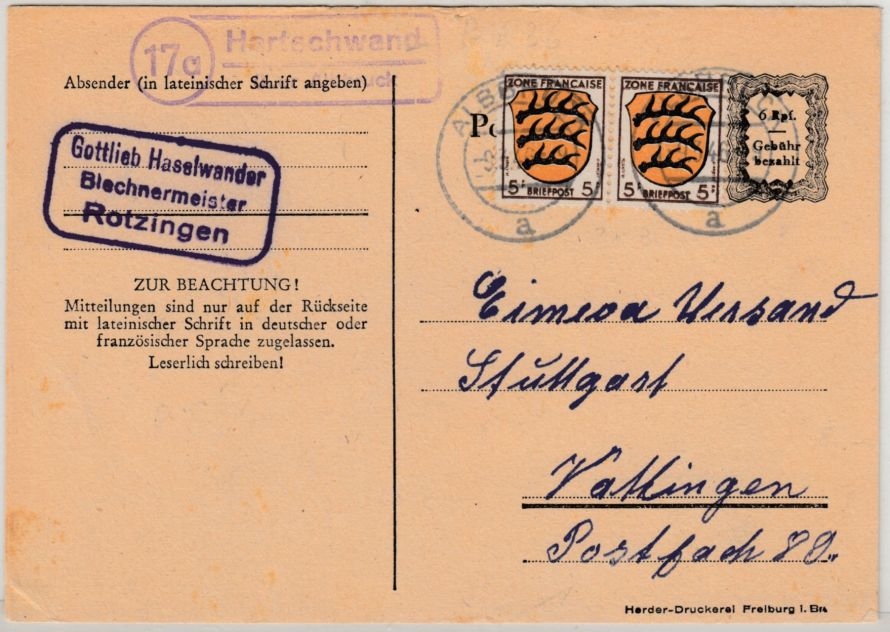 17a
Hartschwand
Absender (in lateinischer Schrift angeben)
Gottlieb Haselwander
Blechnermeister
Rotzingen
ZUR BEACHTUNG!
Mitteilungen sind nur auf der Rückseite
mit lateinischer Schrift in deutscher oder
französischer Sprache zugelassen.
Leserlich schreiben!
ZONE FRANCAISE
5 BRIEFPOST 5
ZONE FRANCAISE
5 BRIEFPOST 5
a
a
6 Rpf.
Gebühr
bezahlt
Versand
Stuttgart
Postfach 80.
Herder-Druckerei Freiburg i. Br.